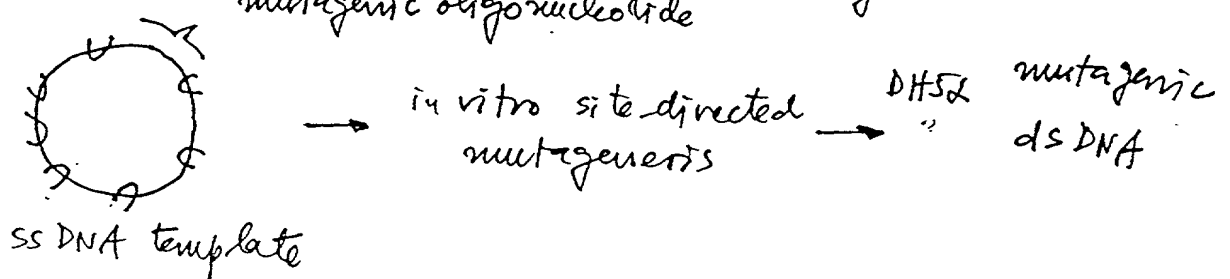 mutagenic oligonucleotide
U
in vitro site-directed
mutagenesis
DH5α
mutagenic
dsDNA
ss DNA template